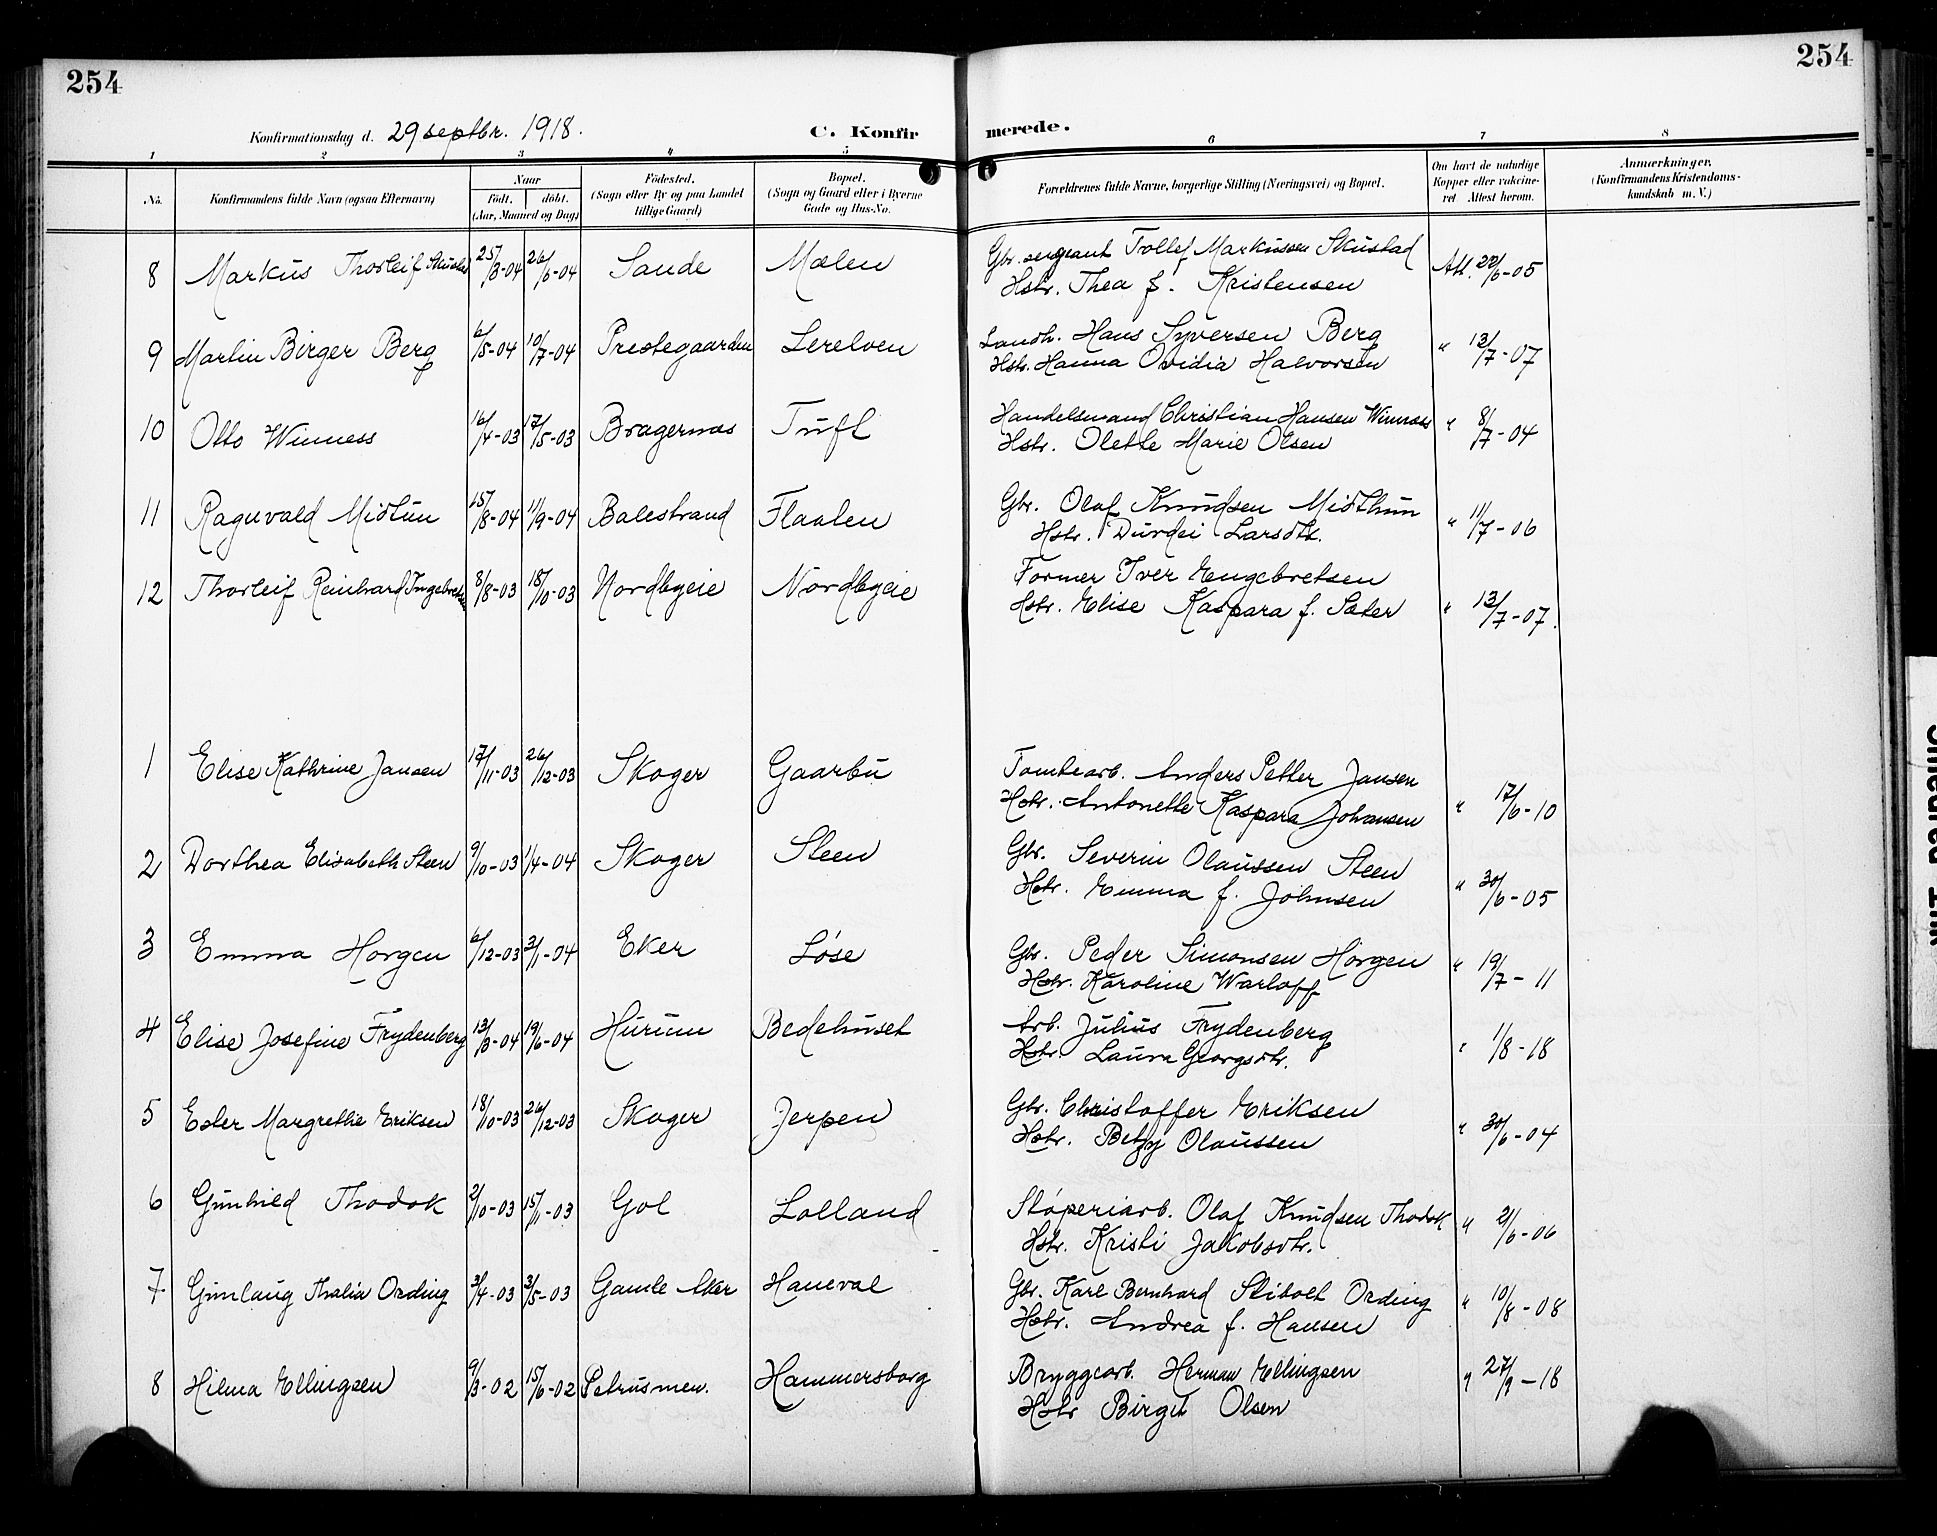 254
254
Konfirmationsdag d. 29 septbr. 1918.
C. Konfirmerede.
1 2 3 4 5 6 7 8
No. Konfirmandens fulde Navn (ogsaa Efternavn) Naar Født. døbt. (Aar, Maaned og Dag) Fødested. (Sogn eller By og paa Landet tillige Gaard) Bopæl. (Sogn og Gaard eller i Byerne Gade og Hus-No. Forældrenes fulde Navne, borgerlige Stilling (Næringsvei) og Bopæl. Om havt de naturlige Kopper eller vaccineret Attest herom. Anmærkninger. (Konfirmandens Kristendomskundskab m. V.)
8 Markus Thorleif Skustad 25/3-04 26/6-04 Sande Mælen Gbr. sergeant Tollef Markussen Skustad Att. 22/6-05
Hstr. Thea f. Kristensen
9 Martin Birger Berg 6/5-04 10/7-04 Prestegaarden Lerelven Landh. Hans Syversen Berg " 13/7-07
Hstr. Hanna Ovidia Halvorsen
10 Otto Winness 16/4-03 17/5-03 Bragernæs Tuft Handelsmand Christian Hansen Winnæss " 8/7-04
Hstr. Olette Marie Olsen
11 Ragnvald Midtun 15/8-04 11/9-04 Balestrand Flaaten Gbr. Olaf Knudsen Midthun " 11/7-06
Hstr. Durdei Larsdtr.
12 Thorleif Reinhard Ingebretsen 8/8-03 18/10-03 Nordbyeie Nordbyeie Former Iver Engebretsen
Hstr. Elise Kaspara f. Sæter " 13/7-07.
1 Elise Kathrine Jansen 17/11-03 26/12-03 Skoger Gaarbu Tomtearb. Anders Petter Jansen
Hstr. Antonette Kaspara Johansen " 17/6-10
2 Dorthea Elisabeth Steen 9/10-03 1/4-04 Skoger Steen Gbr. Severin Olaussen Steen
Hstr. Emma f. Johnsen " 30/6-05
3 Emma Horgen 6/12-03 3/1-04 Eker Løse Gbr. Peder Simonsen Horgen " 19/7-11
Hstr. Karoline Warloff
4 Elise Josefine Frydenberg 13/3-04 19/6-04 Hurum Bedehuset Arb. Julius Frydenberg " 1/8-18
Hstr. Laura Georgsdtr.
5 Ester Margrethe Eriksen 18/10-03 26/12-03 Skoger Jerpen Gbr. Christoffer Eriksen " 30/6-04
Hstr. Betzy Olaussen
6 Gunhild Thodok 2/10-03 15/11-03 Gol Lolland Støperiarb. Olaf Knudsen Thodok " 21/6-06
Hstr. Kristi Jakobsdtr.
7 Gunlaug Thalia Ording 3/4-03 3/5-03 Gamle Aker Haneval Gbr. Karl Bernhard Stibolt Ording " 10/8-08
Hstr. Andrea f. Hansen
8 Hilma Ellingsen 9/3-02 15/6-02 Petrusmen. Hammersborg Bryggearb. Herman Ellingsen " 27/9-18
Hstr Birgit Olsen